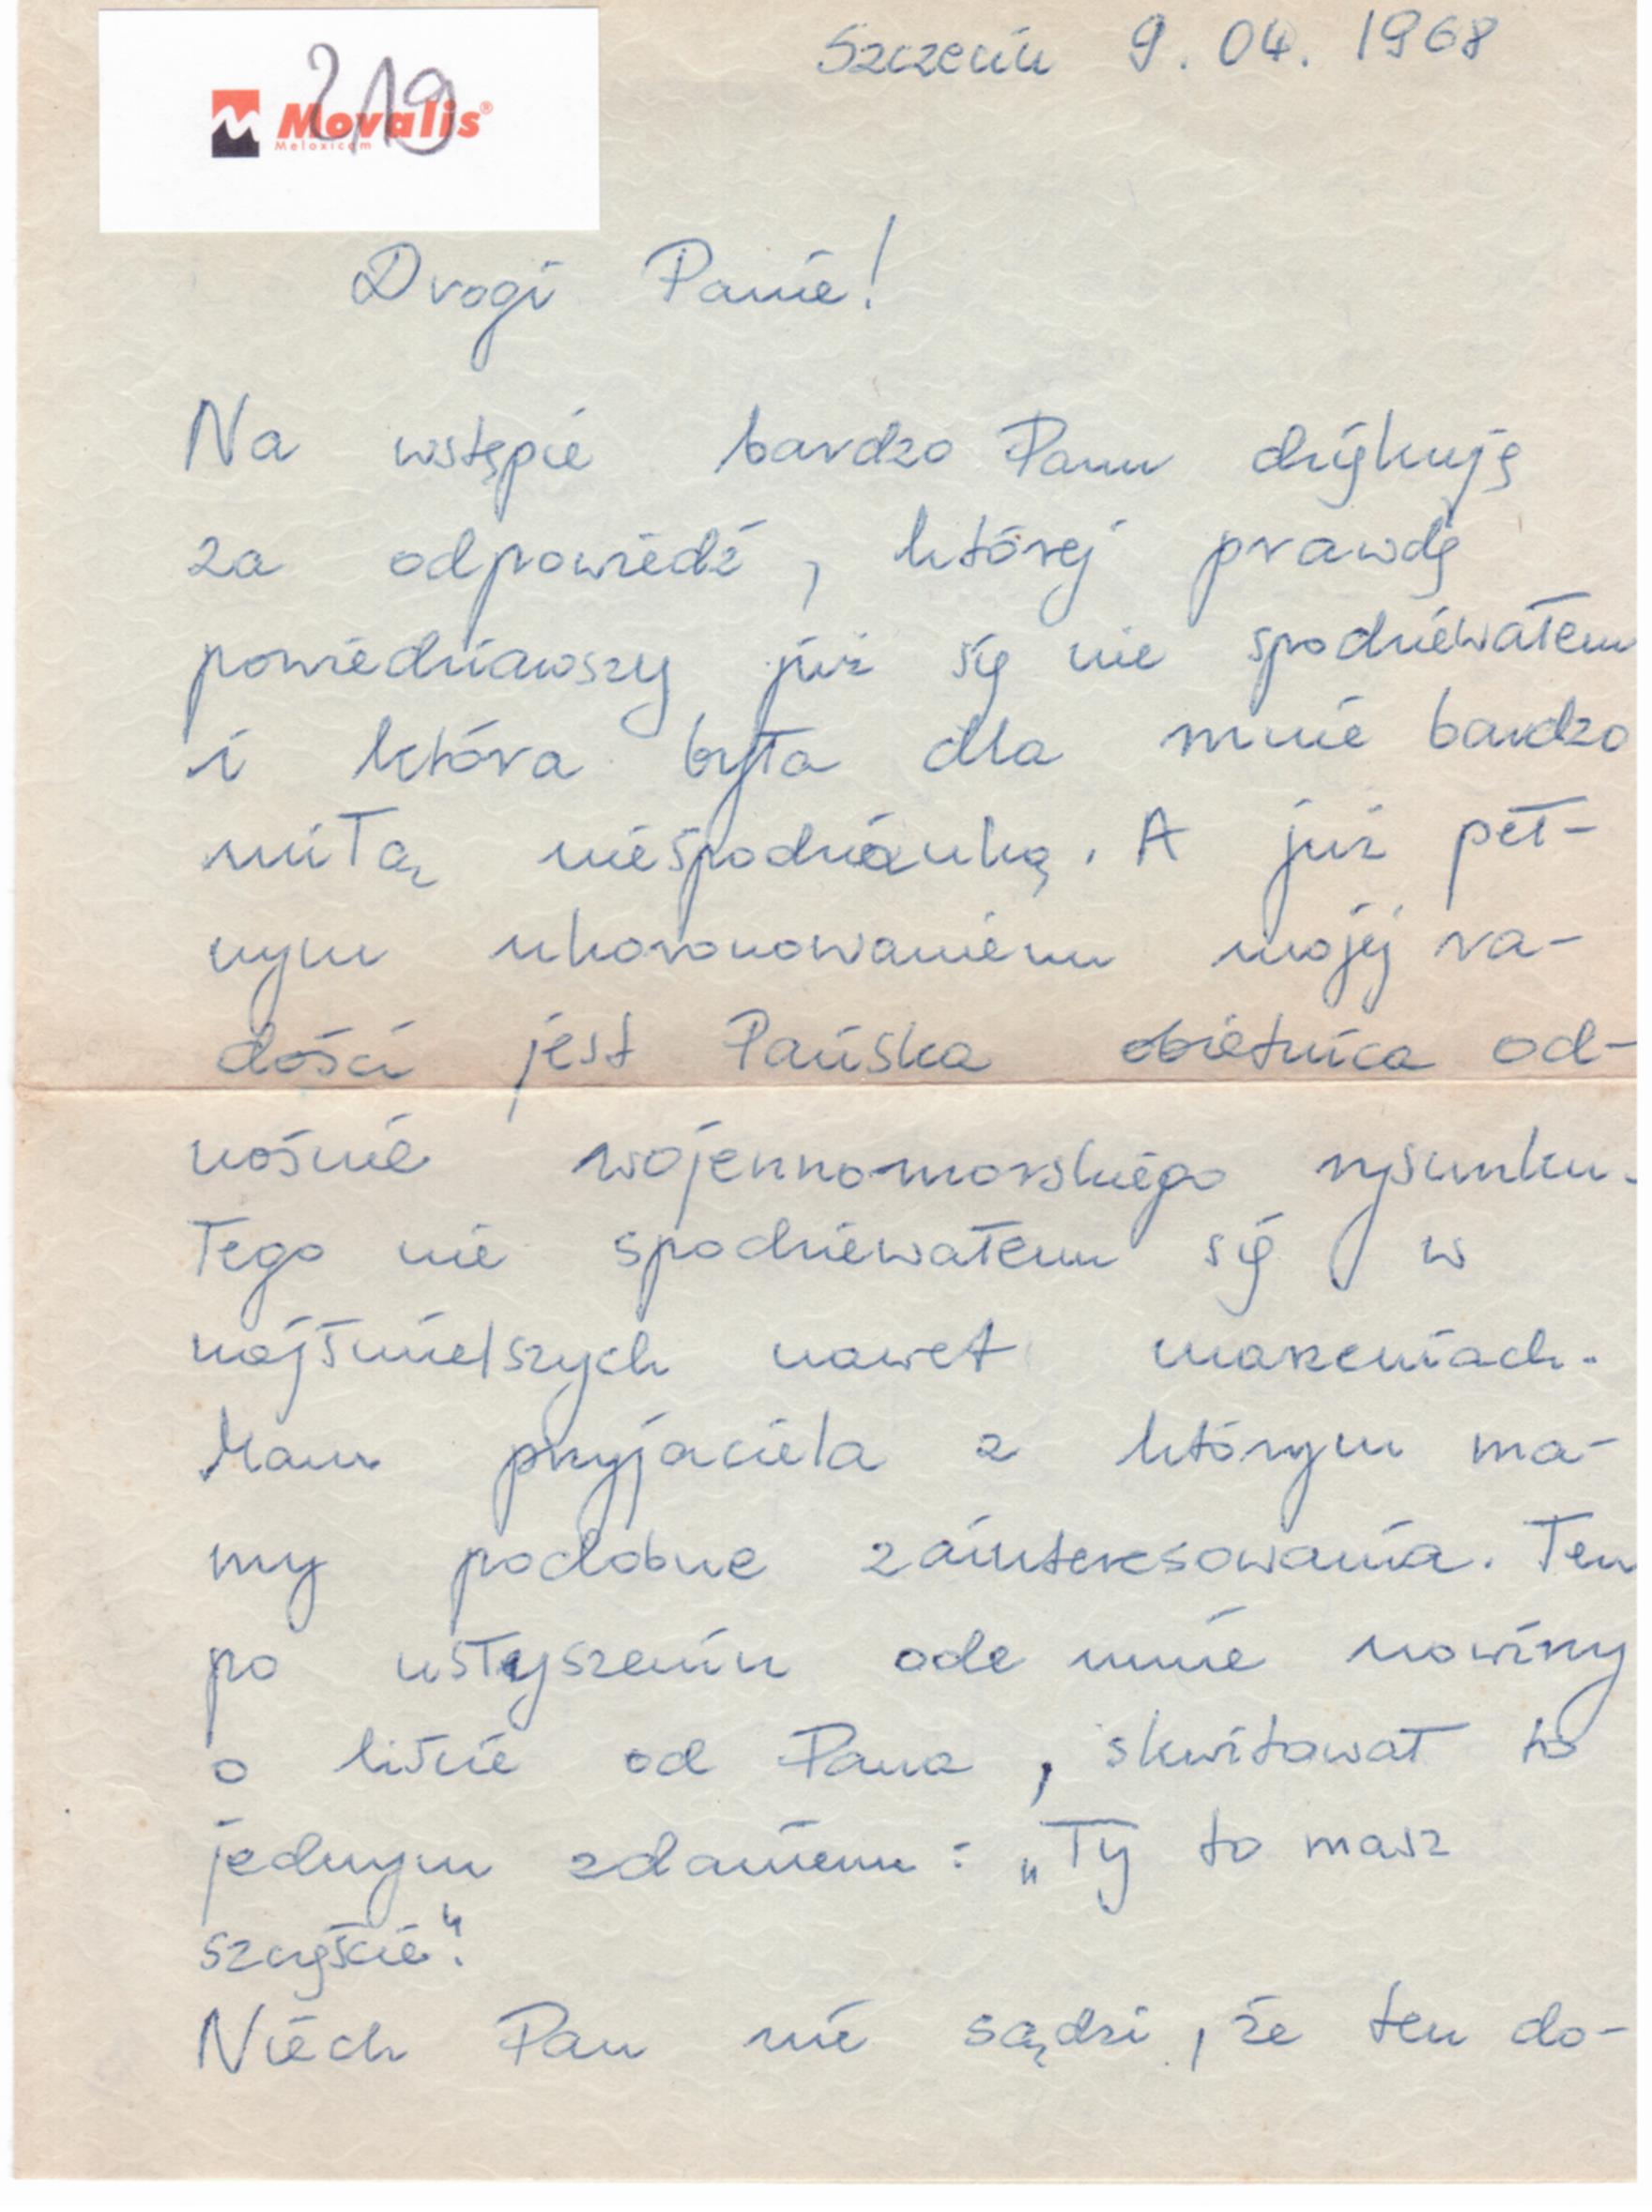 Szczecin 9. 04. 1968
219
Movalis®
Meloxicam
Drogi Panie!
Na wstępie bardzo Panu dziękuję
za odpowiedź, której prawdę
powiedziawszy już się nie spodziewałem
i która była dla mnie bardzo
miłą niespodzianką. A już peł-
nym ukoronowaniem mojej ra-
dości jest Pańska obietnica od-
nośnie wojennomorskiego rysunku.
Tego nie spodziewałem się w
najśmielszych nawet marzeniach.
Mam przyjaciela z którym ma-
my podobne zainteresowania. Ten
po usłyszeniu ode mnie nowiny
o liście od Pana, skwitował to
jednym zdaniem: „Ty to masz
szczęście".
Niech Pan nie sądzi, że ten do-